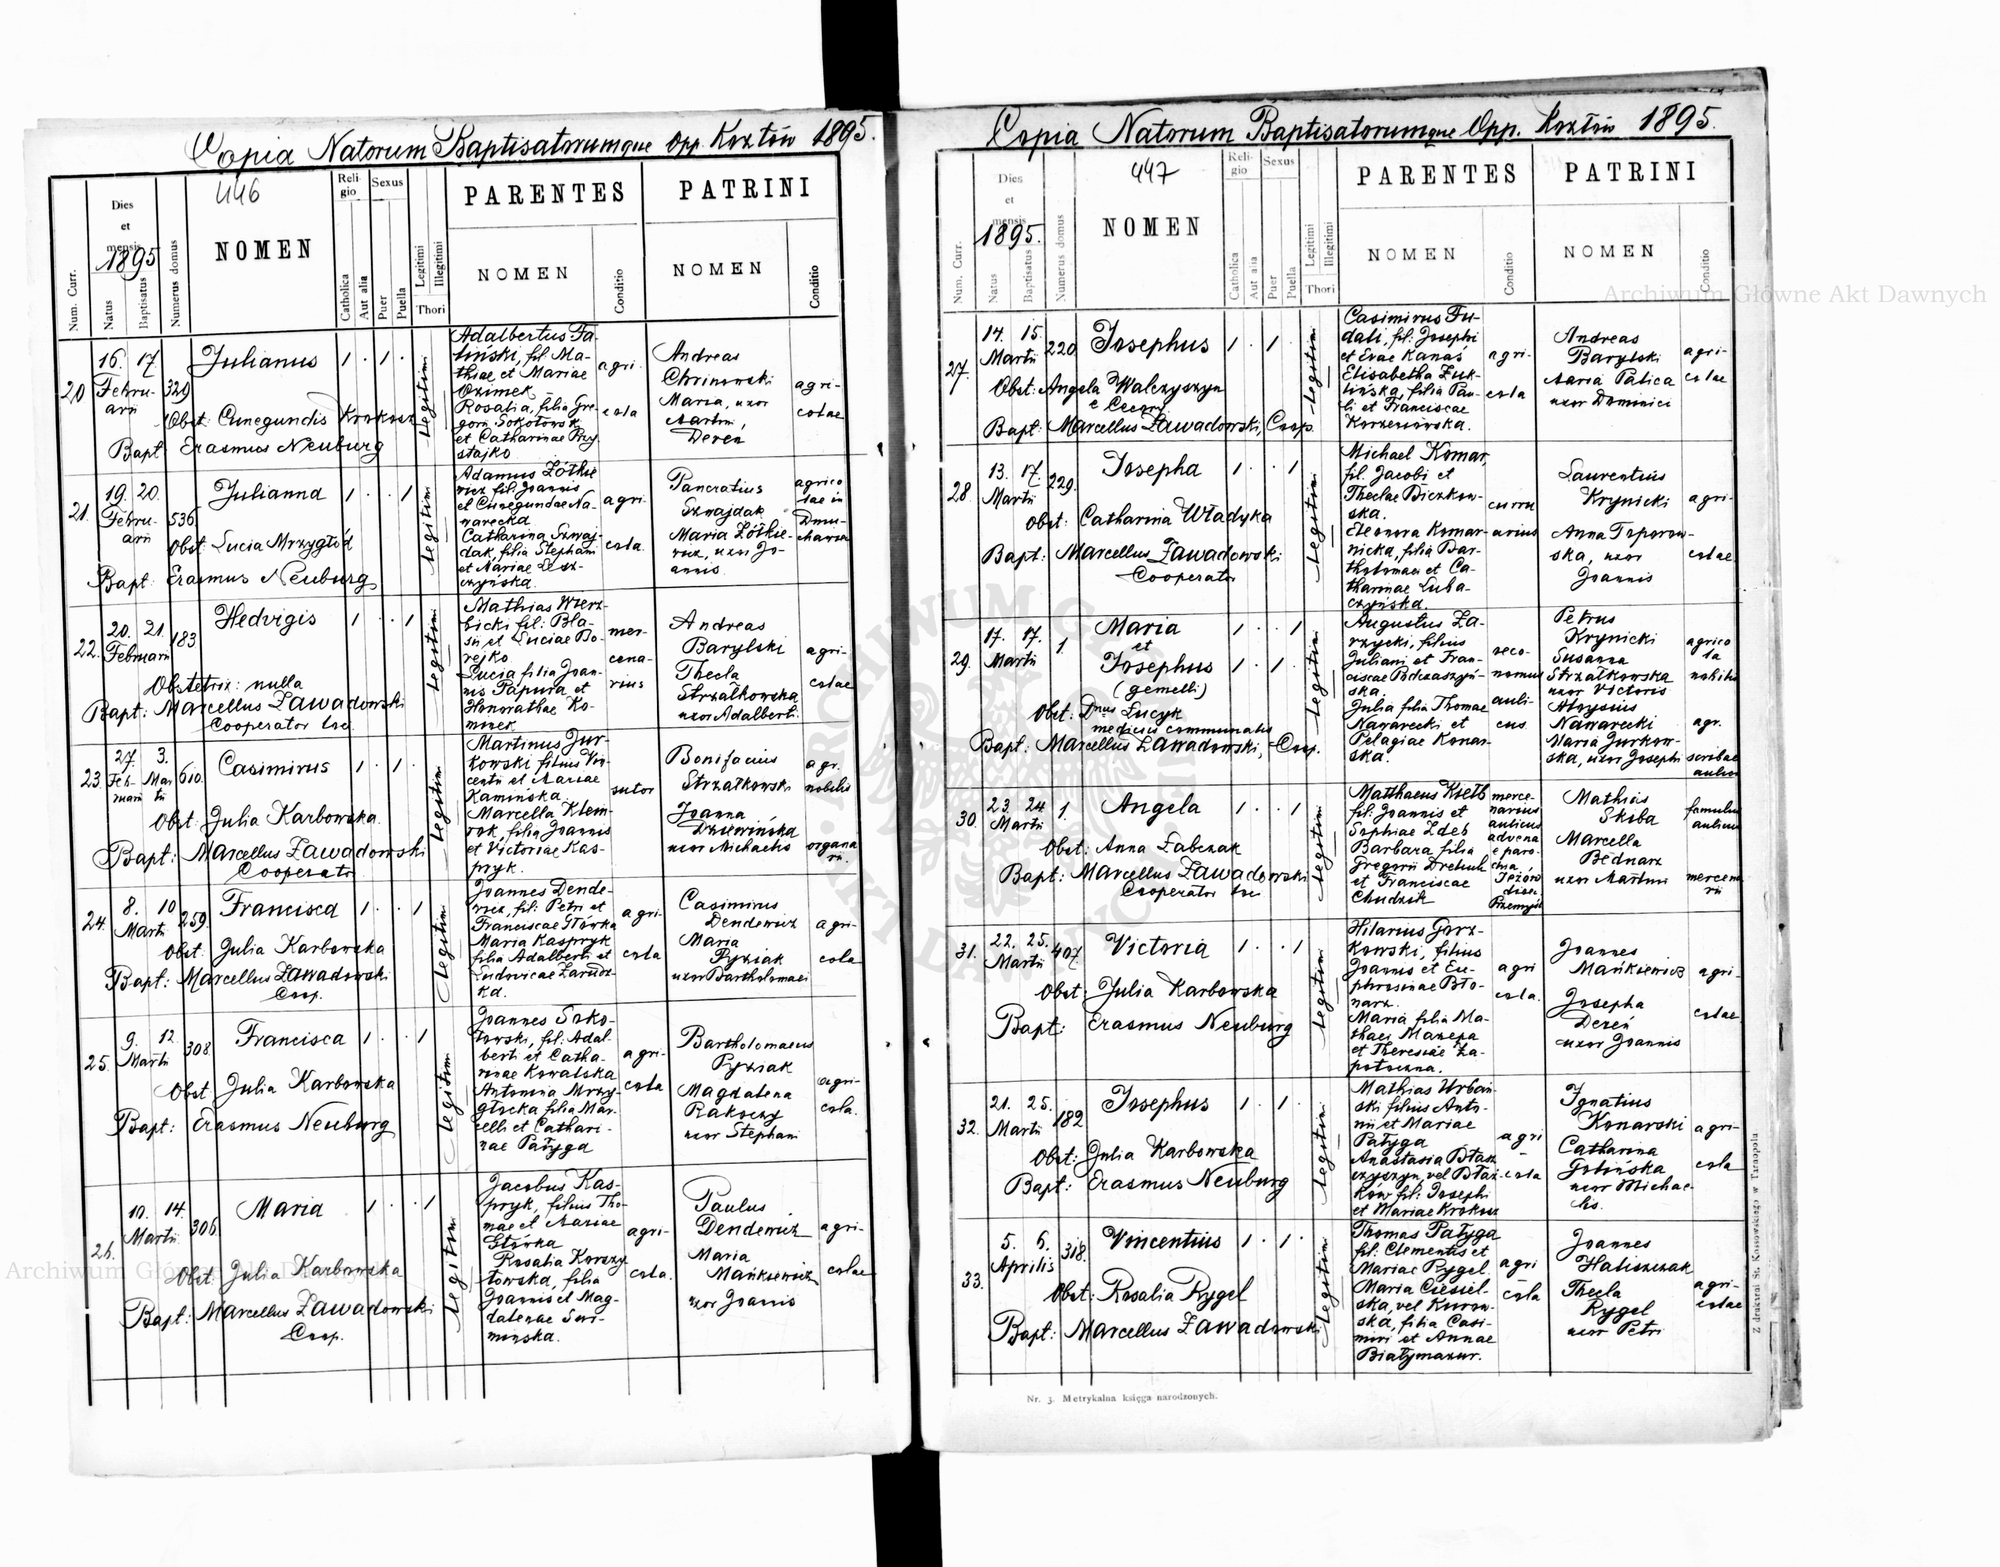 Copia Natorum Baptisatorumque Opp. Kozłów 1895.
446
Dies et mensis 1895
Num. Curr.
Natus
Baptisatus
Numerus domus
NOMEN
Religio
Catholica
Aut alia
Sexus
Puer
Puella
Legitimi
Illegitimi
Thori
PARENTES
NOMEN
Conditio
PATRINI
NOMEN
Conditio
20
16. 17.
Februarii
329
Julianus
1 . 1 .
Obst: Cunegundis Krokosz
Bapt Erasmus Neuburg
Legitim
thiae et Mariae
Ozimek
Rosalia, filia Gre-
gorii Sokołowsk
et Catharinae Pry
stajko
agri-
cola
Andreas
Maria, uxor
Martini,
Dereń
agri-
colae
21.
19. 20.
Febru-
arii
536
Julianna
1 . . 1
Obst: Lucia Mrzygłód
Bapt: Erasmus Neuburg
Legitim
fil. Joannis
et Cunegundae Na-
warecka
Catharina Szwaj-
dak, filia Stephani
et Mariae Lesz-
czyńska.
agri-
cola.
Pancratius
Szwajdak
Maria
uxor Jo-
annis
agrico
lae in
Dmu-
22.
20. 21.
Februarii
183
Hedvigis
1 . . 1
Obstetrix: nulla
Bapt: Marcellus Zawadowski
Cooperator loc.
Legitim
Mathias Wierz-
bicki fil: Bla-
sii et Luciae Bo-
rejko
Lucia filia Joan-
nis Papura et
Honorathae Ko-
minek
mer-
cena-
rius
Andreas
Barylski
Thecla
Strzałkowska
uxor Adalberti.
agri-
colae
23.
27. 3.
Feb- Mar
ruarii tii
610.
Casimirus
1 . 1 .
Obst: Julia Karbowska.
Bapt: Marcellus Zawadowski
Cooperator
Legitim
Martinus Jur-
kowski filius Vin-
centii et Mariae
Kamińska.
Marcella Klem-
filia Joannis
et Victoriae Kas-
pryk.
sutor
Bonifacius
Strzałkowski
Joanna
Dziewińska
uxor Michaelis
agr.
nobilis
organa
rii.
24.
8. 10
Martii
259.
Francisca
1 . . 1
Obst. Julia Karbowska
Bapt: Marcellus Zawadowski
Coop.
Legitim
Joannes Dende-
wicz, fil: Petri et
Franciscae Główka
Maria Kaspryk
filia Adalberti et
Ludovicae Zarudz-
ka.
agri-
cola
Casimirus
Dendewicz
Maria
Pyziak
uxor Bartholomaei
agri-
cola
25.
9. 12.
Martii
308
Francisca
1 . . 1
Obst. Julia Karbowska
Bapt: Erasmus Neuburg
Legitim
Joannes Soko-
łowski, fil: Adal-
berti et Catha-
rinae Kowalska
Antonina Mrzy-
głocka filia Mar-
celli et Cathari-
nae Pałyga
agri-
cola
Bartholomaeus
Pyziak
Magdalena
Rakoczy
uxor Stephani
agri-
cola.
26.
10. 14.
Martii
306
Maria
1 . . 1
Obst: Julia Karbowska
Bapt: Marcellus Zawadowski
Coop.
Legitim
Jacobus Kas-
pryk, filius Tho-
mae et Mariae
Główka
Rosalia Korzy
towska, filia
Joannis et Mag-
dalenae
agri-
cola.
Paulus
Dendewicz
Maria
Mańkiewicz
uxor Joannis
agri-
colae
Copia Natorum Baptisatorumque Opp. Kozłów 1895.
447
Dies et mensis 1895.
Num. Curr.
Natus
Baptisatus
Numerus domus
NOMEN
Religio
Catholica
Aut alia
Sexus
Puer
Puella
Legitimi
Illegitimi
Thori
PARENTES
NOMEN
Conditio
PATRINI
NOMEN
Conditio
27.
14. 15.
Martii
220
Josephus
1 . 1 .
Obst: Angela Walczyszyn
Bapt: Marcellus Zawadowski, Coop.
Legitim
Casimirus Fu-
dali, fil: Josephi
et Evae Kanaś
Elisabetha Żuk-
lińska, filia Pau-
li et Franciscae
Korzeniowska.
agri-
cola
Andreas
Barylski
Maria Patica
uxor Dominici
agri-
colae
28.
13. 17.
Martii
229.
Josepha
1 . . 1
Obst: Catharina Władyka
Bapt: Marcellus Zawadowski
Cooperator
Legitim
Michael Komar,
fil. Jacobi et
Theclae Biczkow-
ska.
Eleonora Komar-
nicka, filia Bar-
tholomaei et Ca-
tharinae Luba-
czyńska.
curru
arius
Laurentius
Krynicki
Anna Toporow-
ska, uxor
Joannis
agri-
colae
29.
17. 17.
Martii
1
Maria
et
Josephus
(gemelli)
1 . . 1
1 . 1 .
Obst: Dnus Łucyk
medicus communalis
Bapt: Marcellus Zawadowski, Coop.
Legitim
Augustus Za-
rzycki, filius
Juliani et Fran-
ciscae
ska.
Julia filia Thomae
Nawarecki et
Pelagiae Konar-
ska.
oeco-
nomus
auli-
cus.
Petrus
Krynicki
Susanna
Strzałkowska
uxor Victoris
Aloysius
Nawarecki
Maria Jurkow-
ska, uxor Josephi
agrico
la
nobilis
agr.
scribae
aulici
30.
23. 24
Martii
1.
Angela
1 . . 1
Obst: Anna Łabczak
Bapt: Marcellus Zawadowski
Cooperator loc.
Legitim
Matthaeus Kiełb
fil: Joannis et
Sophiae Zdeb
Barbara filia
Gregorii
et Franciscae
Chudzik
merce-
narius
aulicus
advena
e paro-
chia
Przemyśl
Mathias
Skiba
Marcella
Bednarz
uxor Martini
famulus
aulicus
mercena
rii
31.
22. 25.
Martii
407
Victoria
1 . . 1
Obst: Julia Karbowska
Bapt: Erasmus Neuburg
Legitim
Hilarius Gorz-
kowski, filius
Joannis et Eu-
phrosinae Bło-
narz.
Maria filia Ma-
thaei Mazepa
et Theresiae Za-
potoczna.
agri
cola.
Joannes
Mańkiewicz
Josepha
Dereń
uxor Joannis
agri-
colae
32.
21. 25.
Martii
182
Josephus
1 . 1 .
Obst: Julia Karbowska
Bapt: Erasmus Neuburg
Legitim
Mathias Urbań-
ski filius Anto-
nii et Mariae
Pałyga
Anastasia Błasz
czyszyn vel Błaż-
ków fil: Josephi
et Mariae Krokosz
agri
-
cola
Ignatius
Konarski
Catharina
Golińska
uxor Michae-
lis.
agri-
cola
33.
5. 6.
Aprilis
318.
Vincentius
1 . 1 .
Obst: Rosalia Rygel
Bapt: Marcellus Zawadowski
Legitim
Thomas Pałyga
fil: Clementis et
Mariae Rygel
Maria Ciesiel-
ska, vel Kurow-
ska, filia Casi-
miri et Annae
Białymazur.
agri
-
cola
Joannes
Haliszczak
Thecla
Rygel
uxor Petri
agri-
colae
Nr. 3. Metrykalna księga narodzonych.
Z drukarni St. Kossowskiego w Tarnopolu
Archiwum Główne Akt Dawnych
Archiwum Główne Akt Dawnych
ARCHIWUM GŁÓWNE AKT DAWNYCH